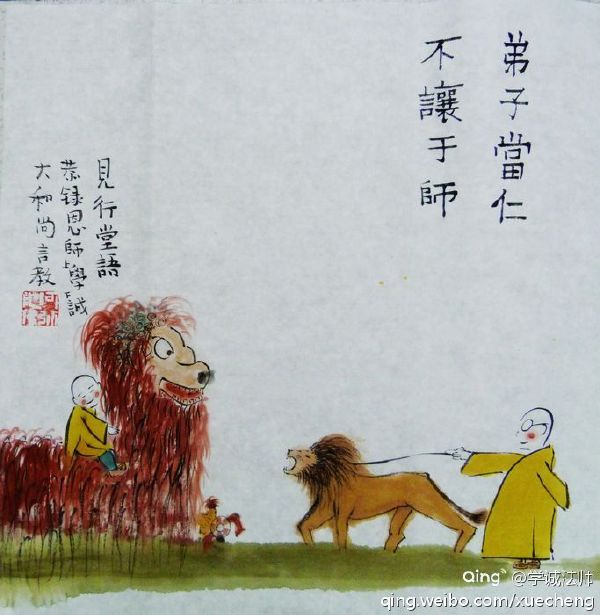 弟子當仁
不讓于師
見行堂語
恭録恩師上學下誠
大和尚言教
Qing @学诚法师
qing.weibo.com/xuecheng